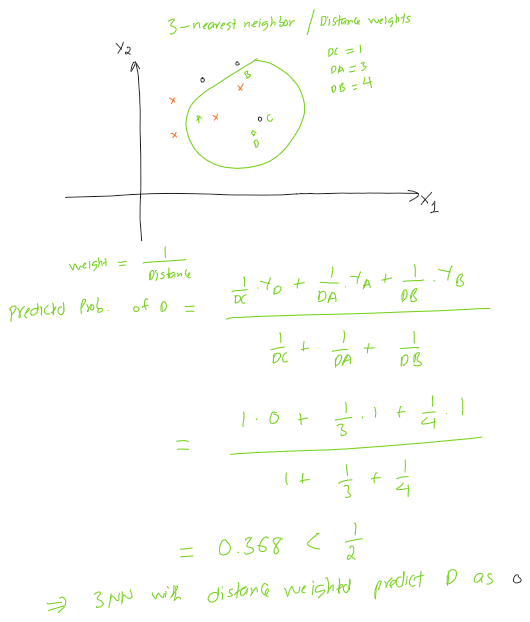 3-nearest neighbor / Distance weights
DC = 1
DA = 3
DB = 4
Y2
B
A
C
D
X1
weight = 1/Distance
Predicted Prob. of D = (1/DC · YD + 1/DA · YA + 1/DB · YB) / (1/DC + 1/DA + 1/DB)
= (1 · 0 + 1/3 · 1 + 1/4 · 1) / (1 + 1/3 + 1/4)
= 0.368 < 1/2
⇒ 3NN with distance weighted predict D as o